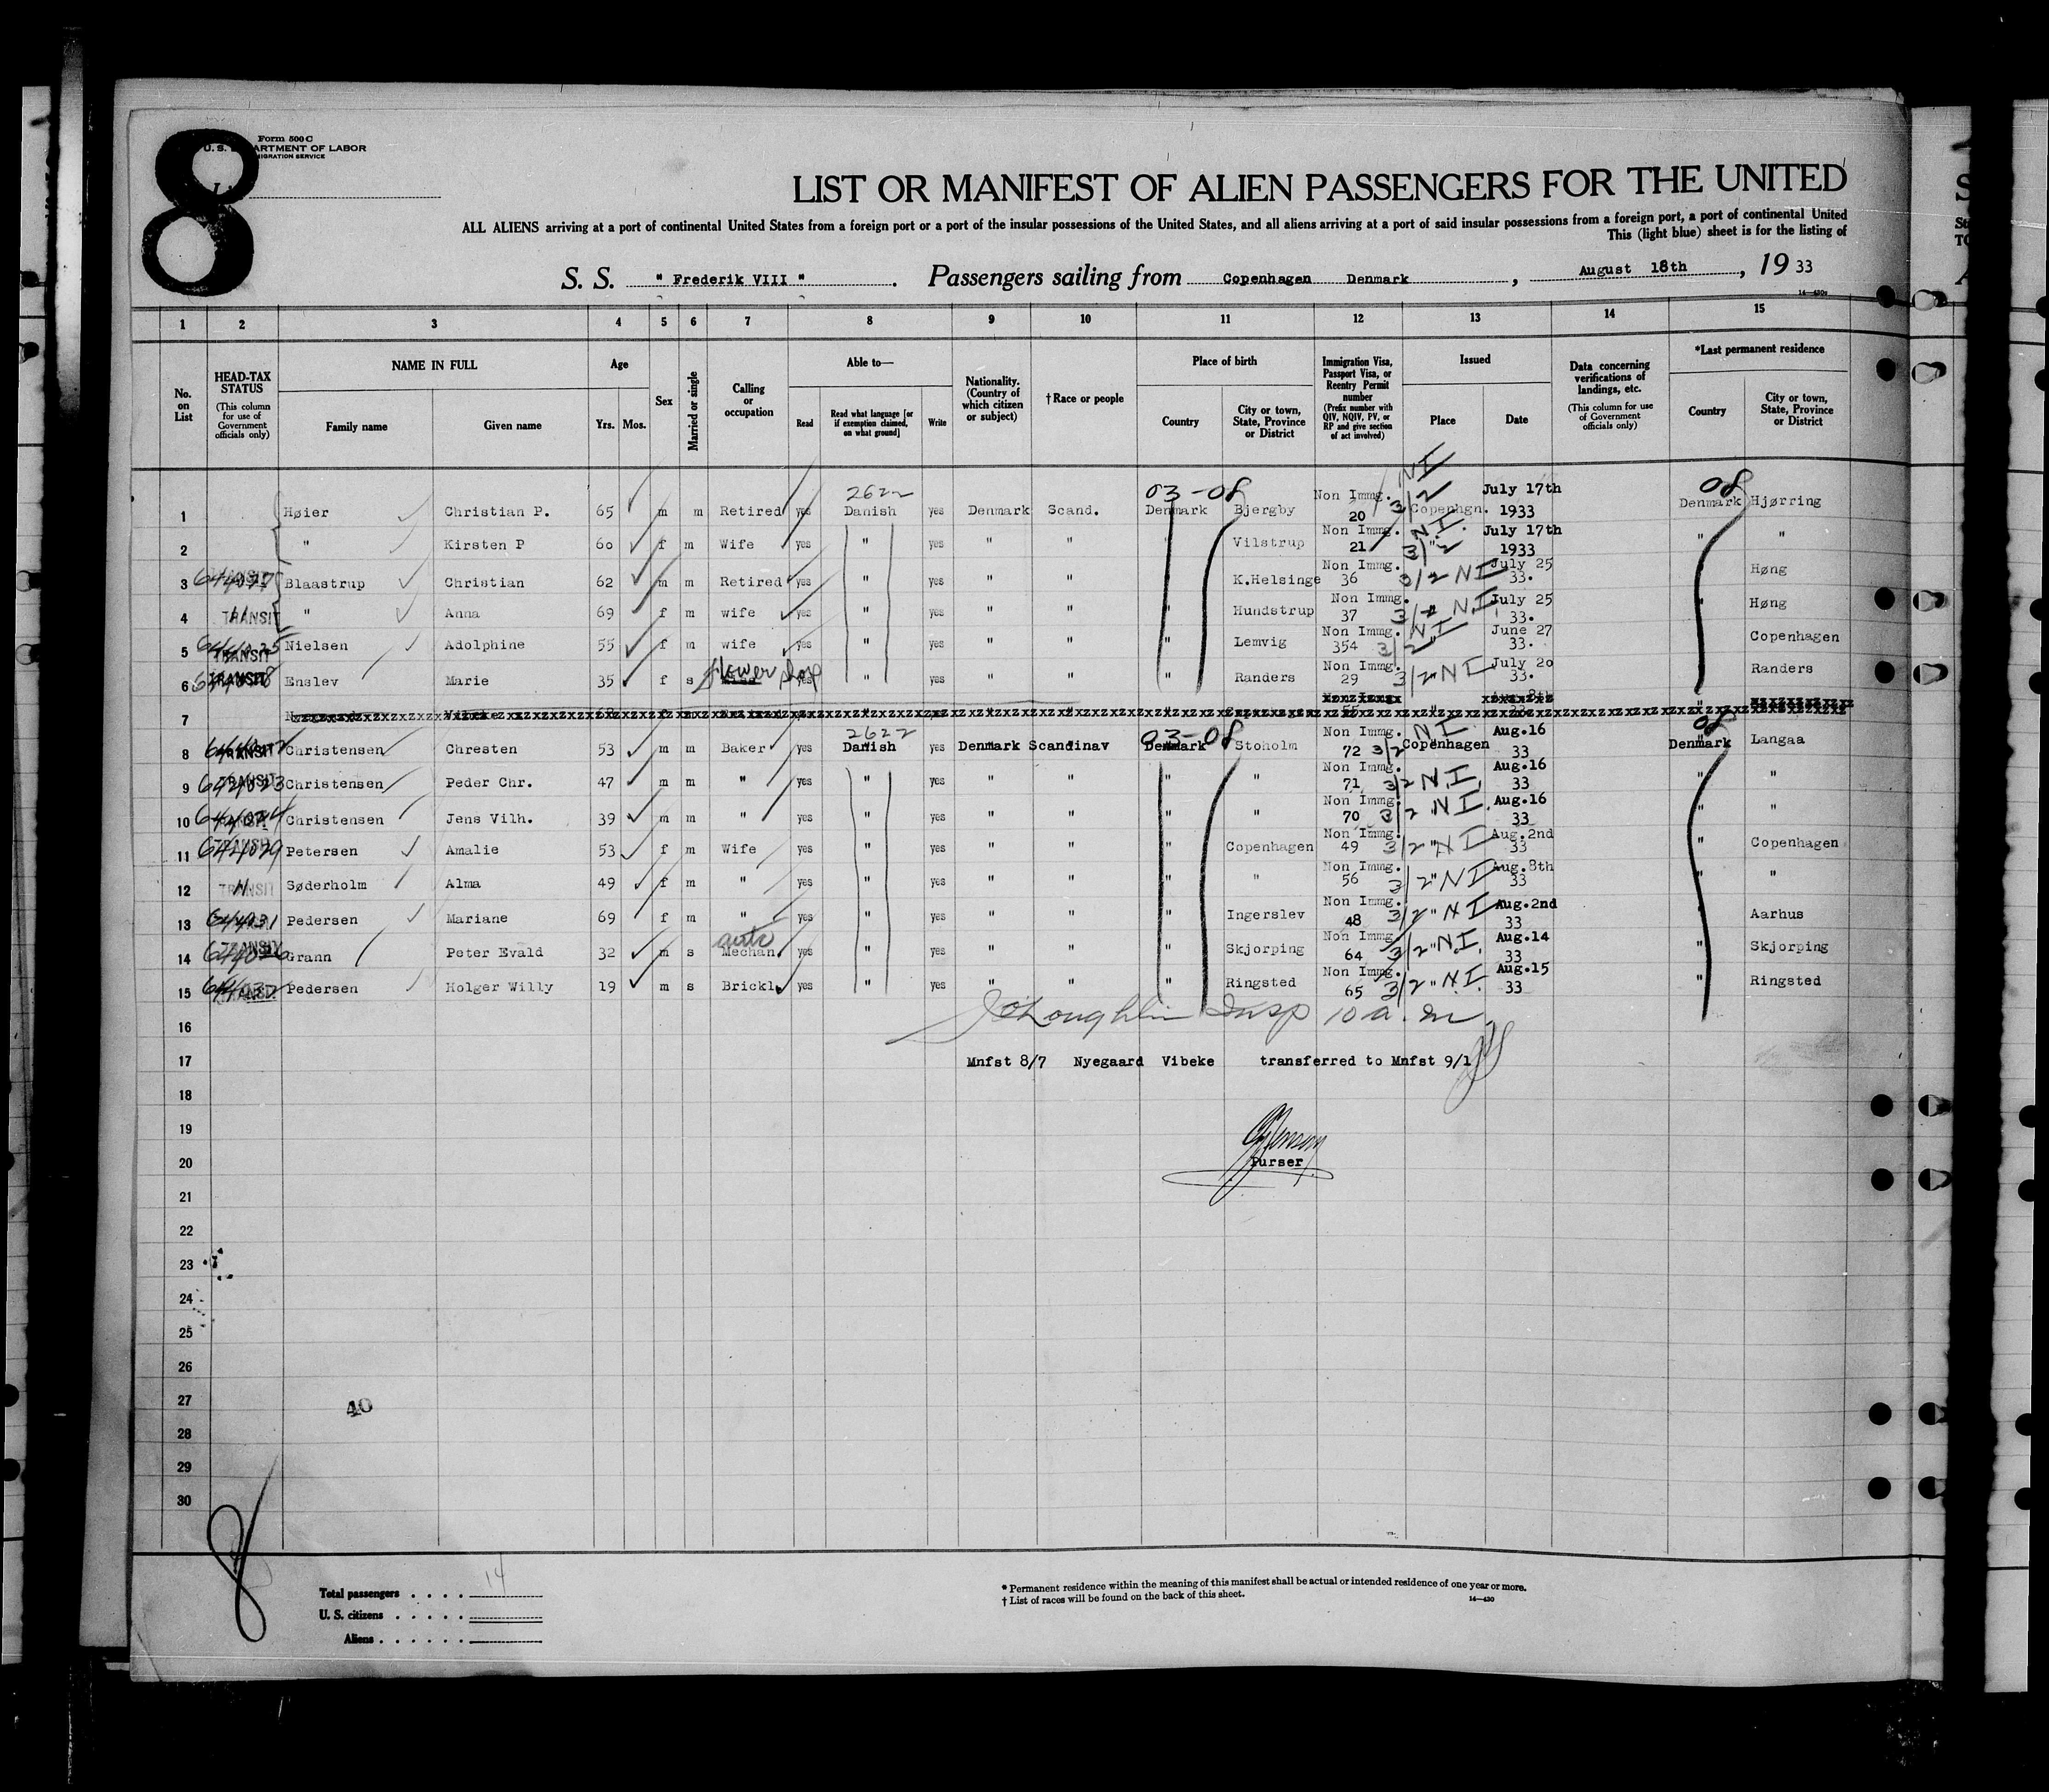 8
Form 500 C
U. S. DEPARTMENT OF LABOR
IMMIGRATION SERVICE
LIST OR MANIFEST OF ALIEN PASSENGERS FOR THE UNITED
ALL ALIENS arriving at a port of continental United States from a foreign port or a port of the insular possessions of the United States, and all aliens arriving at a port of said insular possessions from a foreign port, a port of continental United
This (light blue) sheet is for the listing of
S. S. " Frederik VIII " . Passengers sailing from Copenhagen Denmark , August 18th , 19 33
14—430
1 2 3 4 5 6 7 8 9 10 11 12 13 14 15
No. on List
HEAD-TAX STATUS (This column for use of Government officials only)
NAME IN FULL
Family name Given name
Age
Yrs. Mos.
Sex
Married or single
Calling or occupation
Able to—
Read Read what language [or if exemption claimed, on what ground] Write
Nationality. (Country of which citizen or subject)
† Race or people
Place of birth
Country City or town, State, Province or District
Immigration Visa, Passport Visa, or Reentry Permit number (Prefix number with QIV, NQIV, PV, or RP and give section of act involved)
Issued
Place Date
Data concerning verifications of landings, etc. (This column for use of Government officials only)
*Last permanent residence
Country City or town, State, Province or District
2622 03-08 NI 08
1 Høier Christian P. 65 m m Retired yes Danish yes Denmark Scand. Denmark Bjergby Non Immg. 20 3/2 Copenhgn. July 17th 1933 Denmark Hjørring
2 " Kirsten P 60 f m Wife yes " yes " " " Vilstrup Non Immg. 21 3/2 " N.I. July 17th 1933 " "
3 TRANSIT Blaastrup Christian 62 m m Retired yes " yes " " " K.Helsinge Non Immg. 36 3/2 NI July 25 33. " Høng
4 TRANSIT " Anna 69 f m wife yes " yes " " " Hundstrup Non Immg. 37 3/2 N.I. July 25 33. " Høng
5 TRANSIT Nielsen Adolphine 55 f m wife yes " yes " " " Lemvig Non Immg. 354 3/2 NI June 27 33. " Copenhagen
6 TRANSIT Enslev Marie 35 f s flower shop yes " yes " " " Randers Non Immg. 29 3/2 " NI July 20 33. " Randers
7
2622 03-08 08
8 TRANSIT Christensen Chresten 53 m m Baker yes Danish yes Denmark Scandinav Denmark Stoholm Non Immg. 72 3/2 Copenhagen NI Aug.16 33 Denmark Langaa
9 TRANSIT Christensen Peder Chr. 47 m m " yes " yes " " " " Non Immg. 71 3/2 N.I. Aug.16 33 " "
10 TRANSIT Christensen Jens Vilh. 39 m m " yes " yes " " " " Non Immg. 70 3/2 " N.I. Aug.16 33 " "
11 TRANSIT Petersen Amalie 53 f m Wife yes " yes " " " Copenhagen Non Immg. 49 3/2 " NI Aug. 2nd 33 " Copenhagen
12 TRANSIT Søderholm Alma 49 f m " yes " yes " " " " Non Immg. 56 3/2 " NI Aug. 8th 33 " "
13 Pedersen Mariane 69 f m " yes " yes " " " Ingerslev Non Immg. 48 3/2 " NI Aug.2nd 33 " Aarhus
14 TRANSIT Grann Peter Evald 32 m s auto Mechan. yes " yes " " " Skjorping Non Immg 64 3/2 " N.I. Aug.14 33 " Skjorping
15 TRANSIT Pedersen Holger Willy 19 m s Brickl. yes " yes " " " Ringsted Non Immg. 65 3/2 " N.I. Aug.15 33 " Ringsted
16 Insp 10 a. m
17 Mnfst 8/7 Nyegaard Vibeke transferred to Mnfst 9/1
18
19
20 Purser
21
22
23
24
25
26
27 40
28
29
30
8
Total passengers . . . . 14
U. S. citizens . . . . .
Aliens . . . . . .
* Permanent residence within the meaning of this manifest shall be actual or intended residence of one year or more.
† List of races will be found on the back of this sheet.
14—430